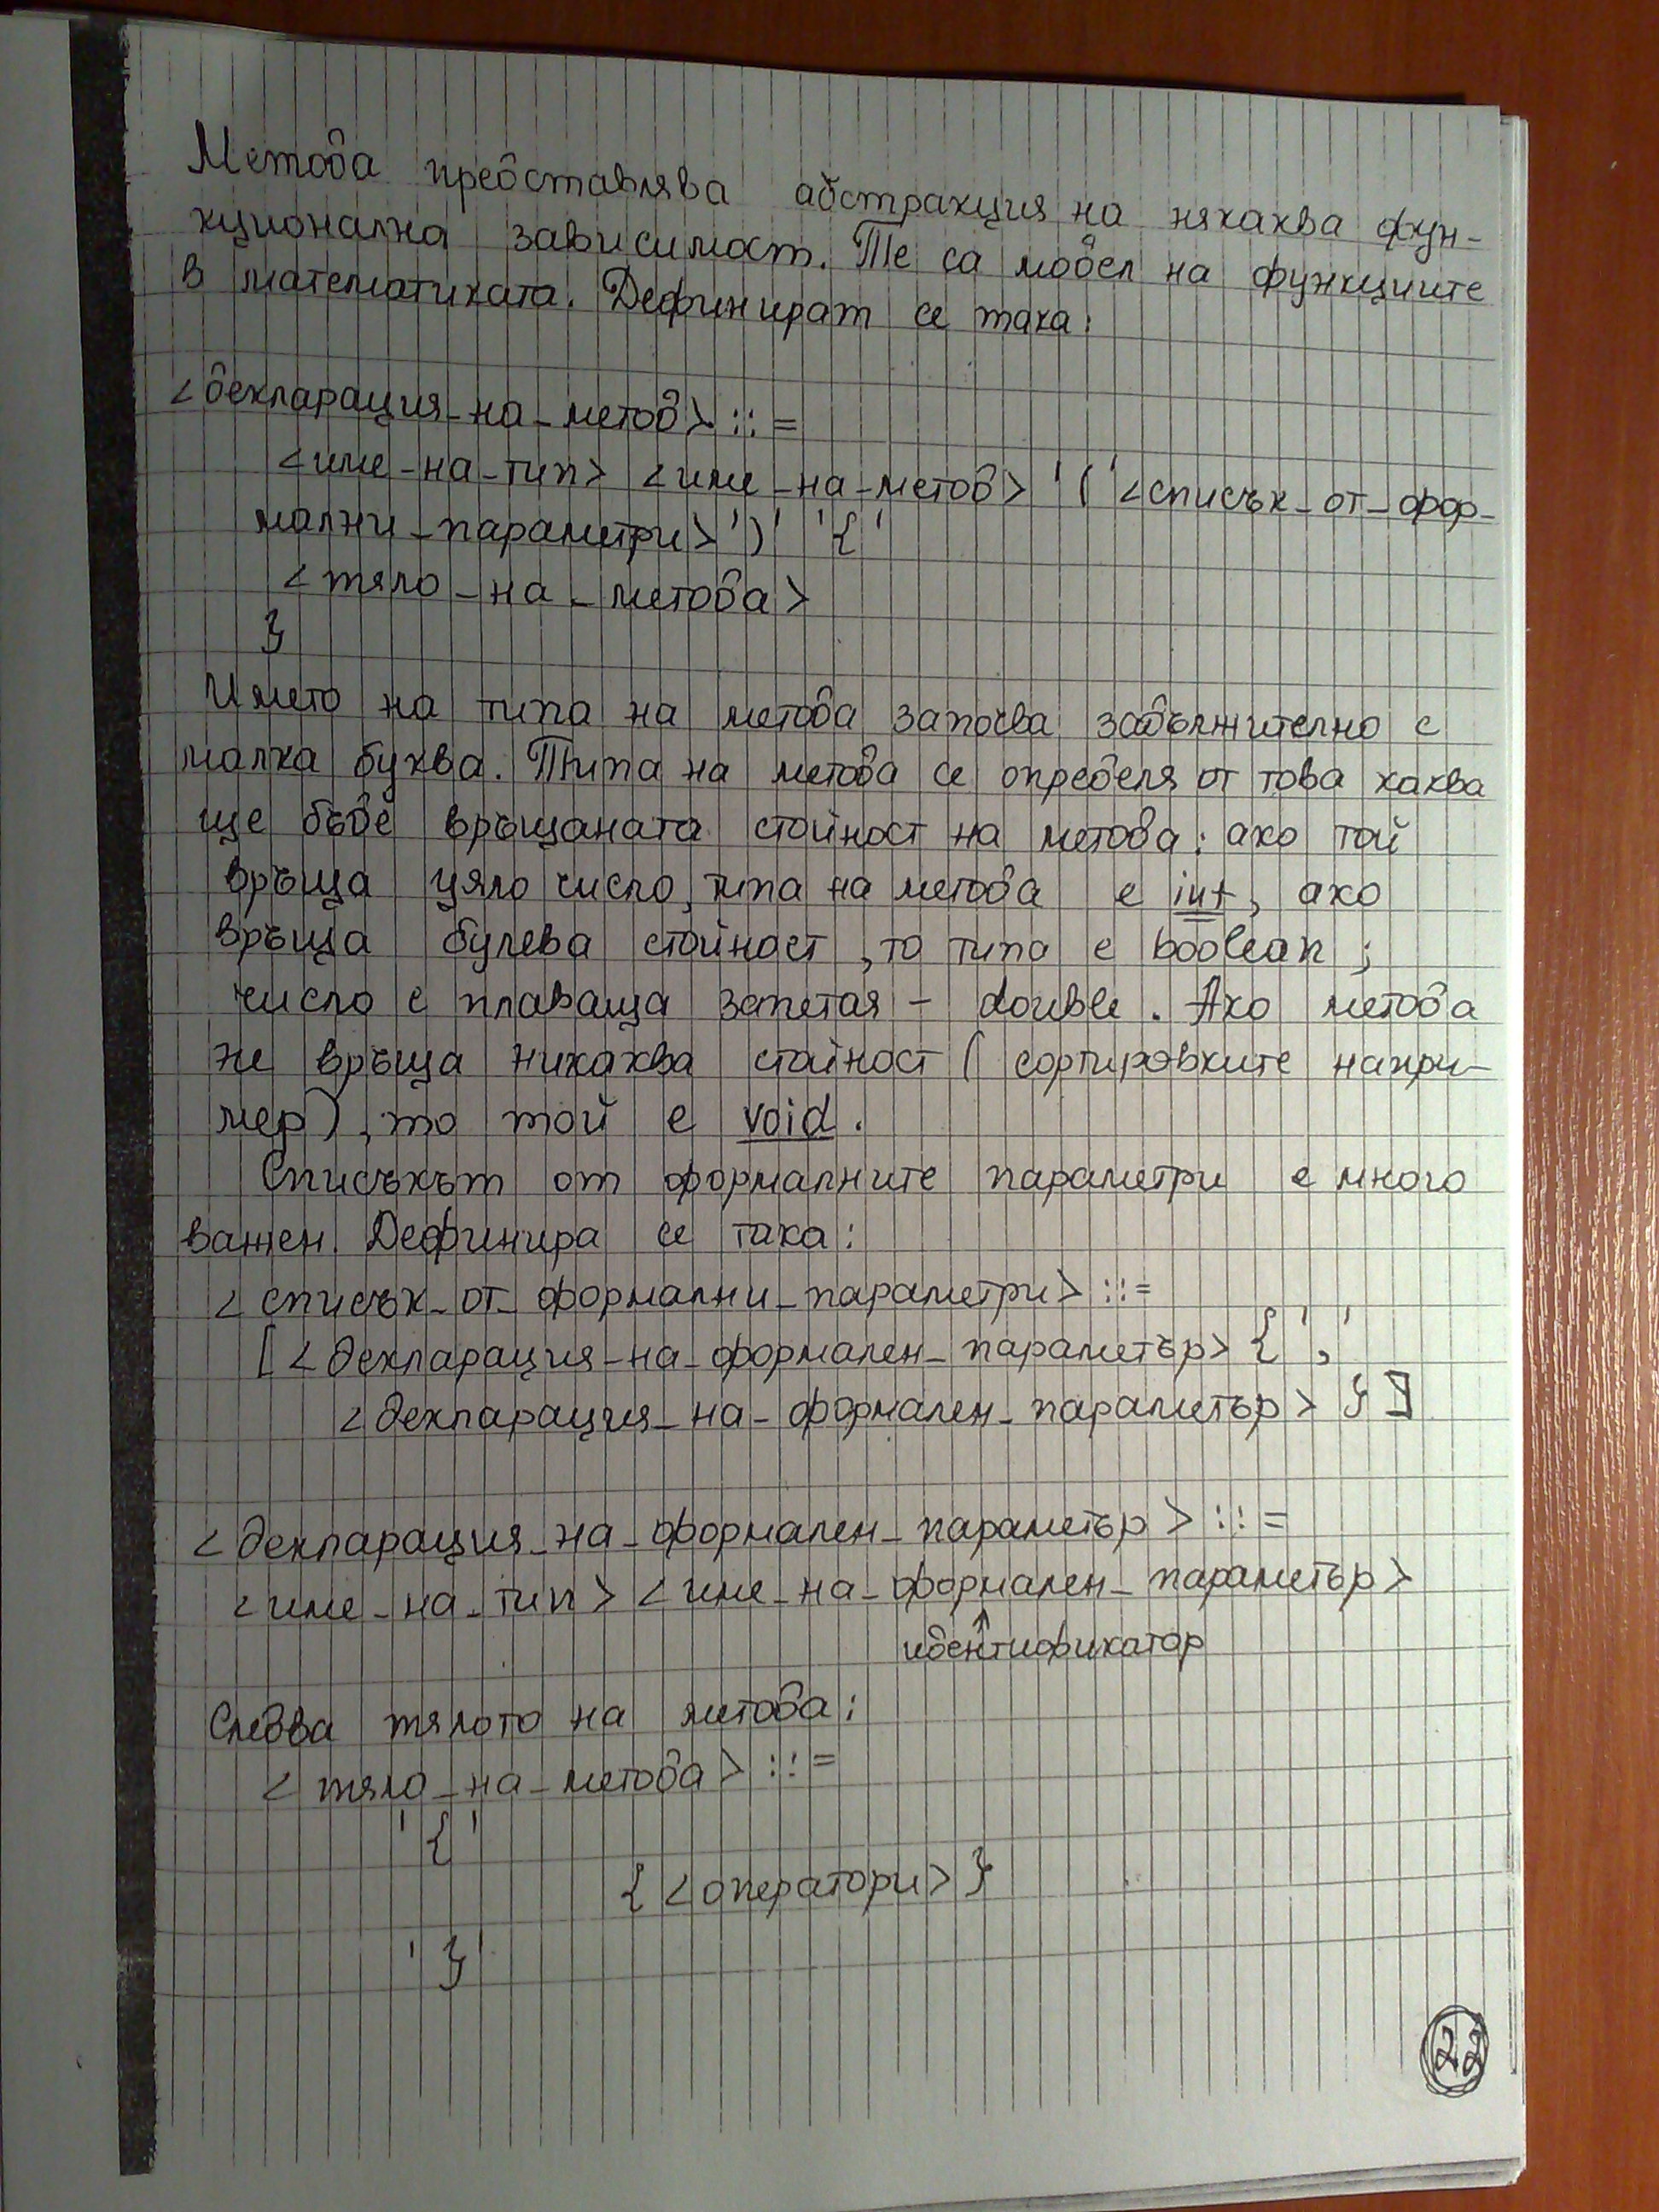 Метода представлява абстракция на някаква фун-
кционална зависимост. Те са модел на функциите
в математиката. Дефинират се така:
<декларация_на_метод> ::=
<име_на_тип> <име_на_метод> '(' <списък_от_фор-
мални_параметри> ')' '{'
<тяло_на_метода>
}
Името на типа на метода започва задължително с
малка буква. Типа на метода се определя от това каква
ще бъде връщаната стойност на метода: ако той
връща цяло число, типа на метода е int, ако
връща булева стойност, то типа е boolean;
число с плаваща запетая - double. Ако метода
не връща никаква стойност (сортировките напри-
мер), то той е void.
Списъкът от формалните параметри е много
важен. Дефинира се така:
<списък_от_формални_параметри> ::=
[<декларация_на_формален_параметър> { ','
<декларация_на_формален_параметър> } ]
<декларация_на_формален_параметър> ::=
<име_на_тип> <име_на_формален_параметър>
идентификатор
Следва тялото на метода:
<тяло_на_метода> ::=
'{'
{ <оператори> }
'}'
22